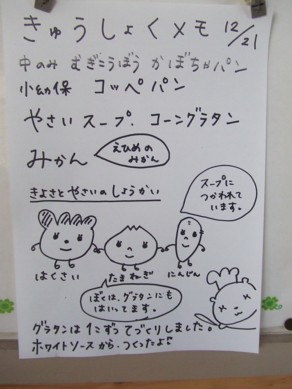 きゅうしょくメモ 12/21
中のみ むぎごぼう かぼちゃパン
小幼保 コッペパン
やさいスープ．コーングラタン
みかん
えひめの
みかん
きよさとやさいのしょうかい
スープに
つかわれて
います。
はくさい
たまねぎ
にんじん
ぼくは、グラタンにも
はいってます。
グラタンは1こずつてづくりしました。
ホワイトソースから、つくったよ♪